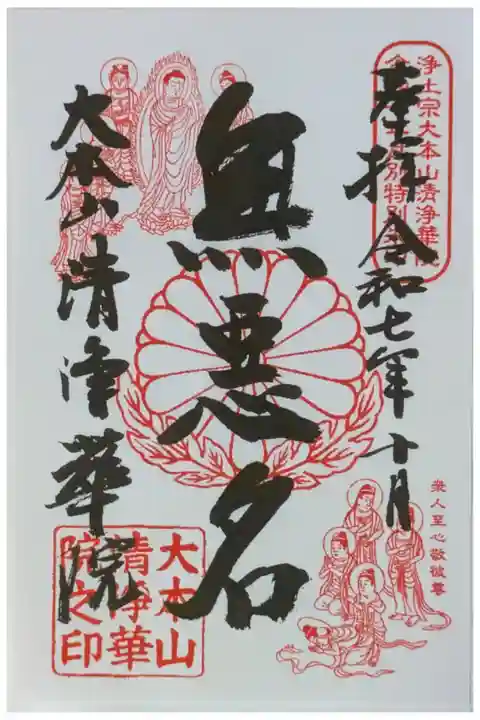 浄土宗大本山清浄華院
別特別
奉拝 令和七年十月
衆人至心敬彼尊
無悪名
大本山清浄華院
大本山
清浄華
院之印